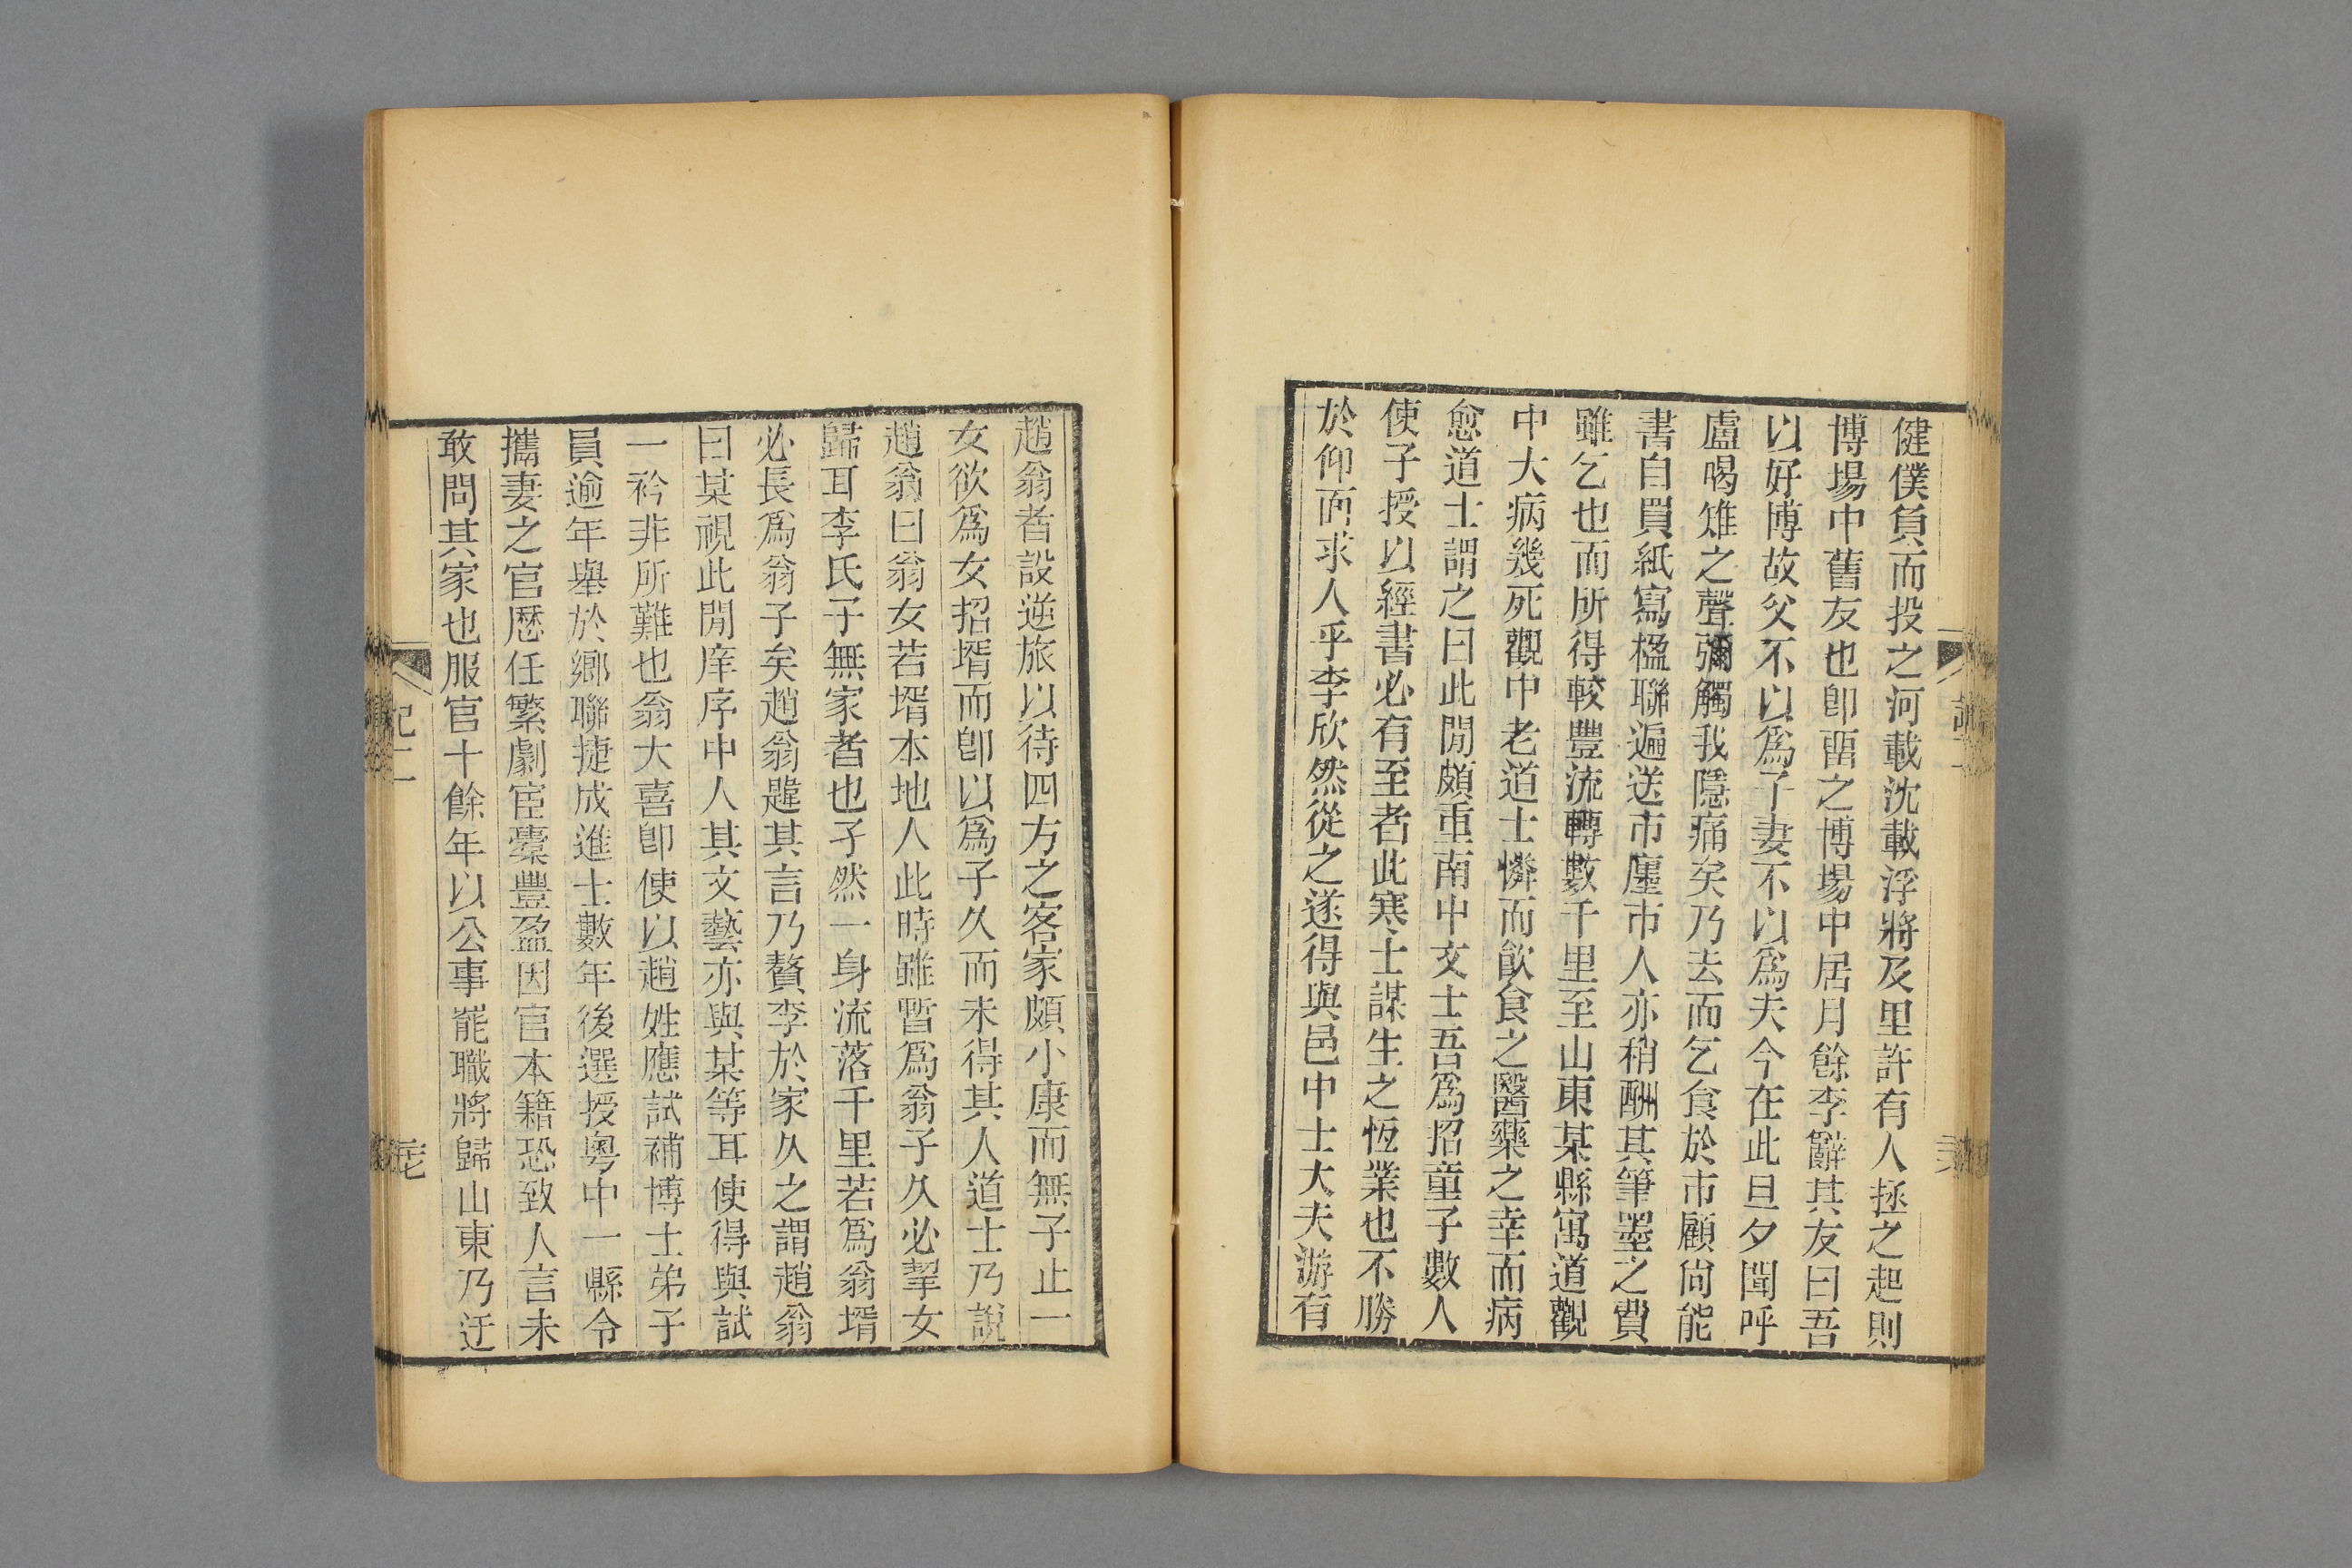 健僕負而投之河載沈載浮將及里許有人拯之起則
博場中舊友也卽畱之博場中居月餘李辭其友曰吾
以好博故父不以爲子妻不以爲夫今在此旦夕聞呼
盧喝雉之聲彌觸我隱痛矣乃去而乞食於市顧尙能
書自買紙寫楹聯遍送市廛市人亦稍酬其筆墨之費
雖乞也而所得較豐流轉數千里至山東某縣寓道觀
中大病幾死觀中老道士憐而飮食之醫藥之幸而病
愈道士謂之曰此閒頗重南中文士吾爲招童子數人
使子授以經書必有至者此寒士謀生之恆業也不勝
於仰面求人乎李欣然從之遂得與邑中士大夫游有
趙翁者設逆旅以待四方之客家頗小康而無子止一
女欲爲女招壻而卽以爲子久而未得其人道士乃說
趙翁曰翁女若壻本地人此時雖暫爲翁子久必挈女
歸耳李氏子無家者也孑然一身流落千里若爲翁壻
必長爲翁子矣趙翁韙其言乃贅李於家久之謂趙翁
曰某視此閒庠序中人其文藝亦與某等耳使得與試
一衿非所難也翁大喜卽使以趙姓應試補博士弟子
員逾年舉於鄉聯捷成進士數年後選授粵中一縣令
攜妻之官歷任繁劇宦橐豐盈因官本籍恐致人言未
敢問其家也服官十餘年以公事罷職將歸山東乃迂
記二